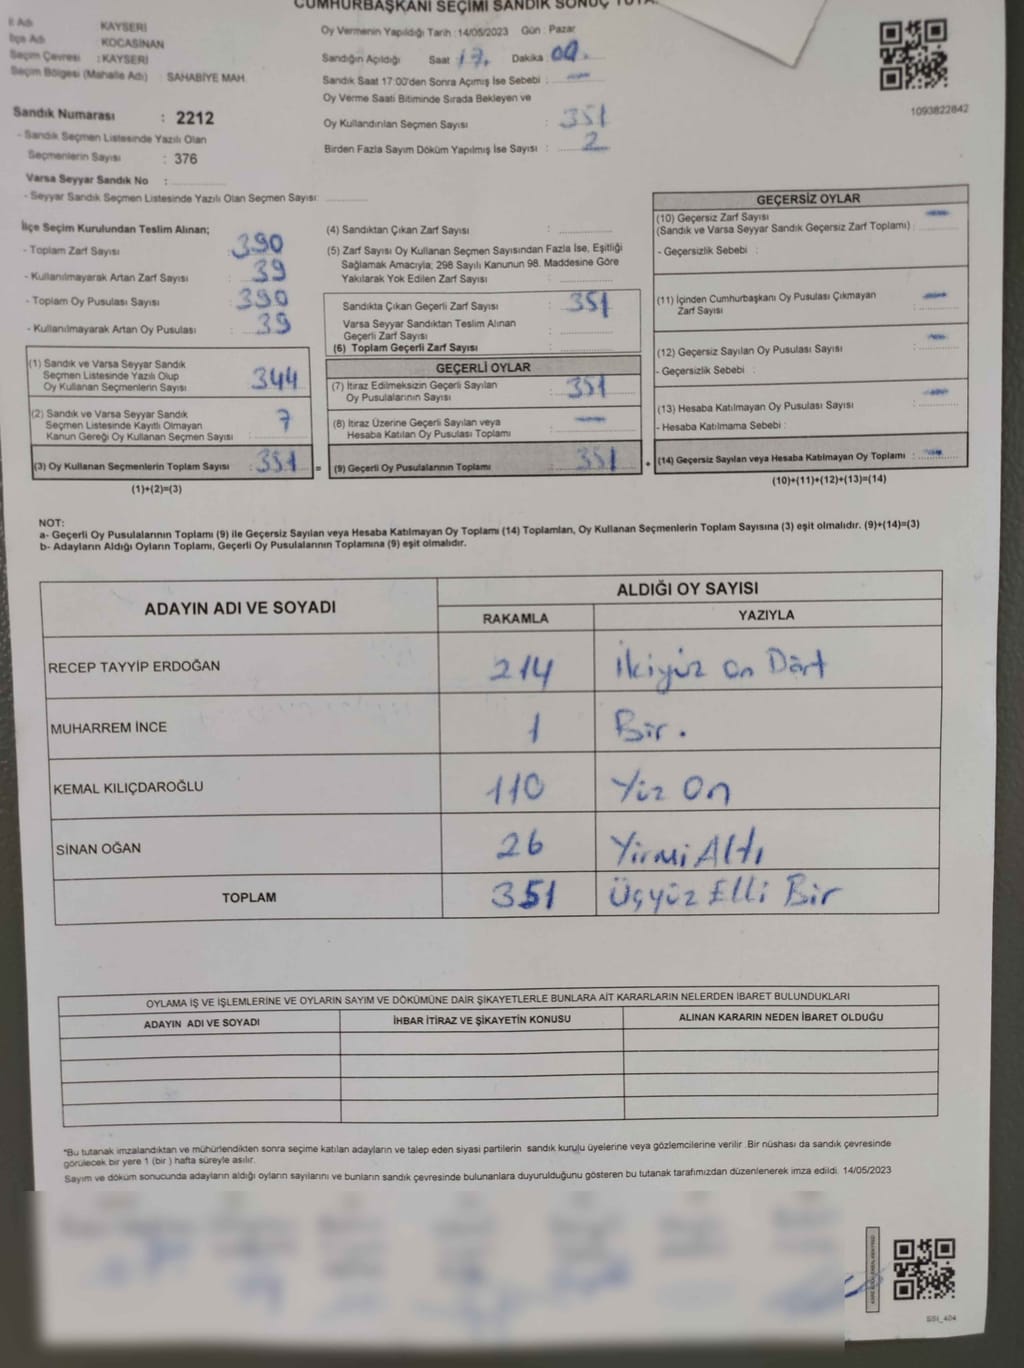 CUMHURBAŞKANI SEÇİMİ SANDIK SONUÇ
İl Adı KAYSERİ
İlçe Adı KOCASİNAN
Seçim Çevresi : KAYSERİ
Seçim Bölgesi (Mahalle Adı) SAHABİYE MAH.
Sandık Numarası : 2212
- Sandık Seçmen Listesinde Yazılı Olan
Seçmenlerin Sayısı : 376
Varsa Seyyar Sandık No :
- Seyyar Sandık Seçmen Listesinde Yazılı Olan Seçmen Sayısı:
Oy Vermenin Yapıldığı Tarih : 14/05/2023 Gün : Pazar
Sandığın Açıldığı Saat 17. Dakika 00.
Sandık Saat 17:00'den Sonra Açımış İse Sebebi : —
Oy Verme Saati Bitiminde Sırada Bekleyen ve
Oy Kullandırılan Seçmen Sayısı : 351
Birden Fazla Sayım Döküm Yapılmış İse Sayısı : 2
1093822842
İlçe Seçim Kurulundan Teslim Alınan;
- Toplam Zarf Sayısı : 390
- Kullanılmayarak Artan Zarf Sayısı : 39
- Toplam Oy Pusulası Sayısı : 390
- Kullanılmayarak Artan Oy Pusulası : 39
(1) Sandık ve Varsa Seyyar Sandık
Seçmen Listesinde Yazılı Olup
Oy Kullanan Seçmenlerin Sayısı 344
(2) Sandık ve Varsa Seyyar Sandık
Seçmen Listesinde Kayıtlı Olmayan
Kanun Gereği Oy Kullanan Seçmen Sayısı 7
(3) Oy Kullanan Seçmenlerin Toplam Sayısı : 351
(1)+(2)=(3)
(4) Sandıktan Çıkan Zarf Sayısı :
(5) Zarf Sayısı Oy Kullanan Seçmen Sayısından Fazla İse, Eşitliği
Sağlamak Amacıyla; 298 Sayılı Kanunun 98. Maddesine Göre
Yakılarak Yok Edilen Zarf Sayısı :
Sandıkta Çıkan Geçerli Zarf Sayısı : 351
Varsa Seyyar Sandıktan Teslim Alınan
Geçerli Zarf Sayısı :
(6) Toplam Geçerli Zarf Sayısı :
GEÇERLİ OYLAR
(7) İtiraz Edilmeksizin Geçerli Sayılan
Oy Pusulalarının Sayısı : 351
(8) İtiraz Üzerine Geçerli Sayılan veya
Hesaba Katılan Oy Pusulası Toplamı : —
= (9) Geçerli Oy Pusulalarının Toplamı : 351
GEÇERSİZ OYLAR
(10) Geçersiz Zarf Sayısı
(Sandık ve Varsa Seyyar Sandık Geçersiz Zarf Toplamı) : —
- Geçersizlik Sebebi :
(11) İçinden Cumhurbaşkanı Oy Pusulası Çıkmayan
Zarf Sayısı : —
(12) Geçersiz Sayılan Oy Pusulası Sayısı : —
- Geçersizlik Sebebi :
(13) Hesaba Katılmayan Oy Pusulası Sayısı : —
- Hesaba Katılmama Sebebi :
+ (14) Geçersiz Sayılan veya Hesaba Katılmayan Oy Toplamı : —
(10)+(11)+(12)+(13)=(14)
NOT:
a- Geçerli Oy Pusulalarının Toplamı (9) ile Geçersiz Sayılan veya Hesaba Katılmayan Oy Toplamı (14) Toplamları, Oy Kullanan Seçmenlerin Toplam Sayısına (3) eşit olmalıdır. (9)+(14)=(3)
b- Adayların Aldığı Oyların Toplamı, Geçerli Oy Pusulalarının Toplamına (9) eşit olmalıdır.
ADAYIN ADI VE SOYADI ALDIĞI OY SAYISI
RAKAMLA YAZIYLA
RECEP TAYYİP ERDOĞAN 214 İkiyüz on Dört
MUHARREM İNCE 1 Bir.
KEMAL KILIÇDAROĞLU 110 Yüz On
SİNAN OĞAN 26 Yirmi Altı
TOPLAM 351 Üçyüz Elli Bir
OYLAMA İŞ VE İŞLEMLERİNE VE OYLARIN SAYIM VE DÖKÜMÜNE DAİR ŞİKAYETLERLE BUNLARA AİT KARARLARIN NELERDEN İBARET BULUNDUKLARI
ADAYIN ADI VE SOYADI İHBAR İTİRAZ VE ŞİKAYETİN KONUSU ALINAN KARARIN NEDEN İBARET OLDUĞU
"Bu tutanak imzalandıktan ve mühürlendikten sonra seçime katılan adayların ve talep eden siyasi partilerin sandık kurulu üyelerine veya gözlemcilerine verilir. Bir nüshası da sandık çevresinde
görülecek bir yere 1 (bir) hafta süreyle asılır.
Sayım ve döküm sonucunda adayların aldığı oyların sayılarını ve bunların sandık çevresinde bulunanlara duyurulduğunu gösteren bu tutanak tarafımızdan düzenlenerek imza edildi. 14/05/2023